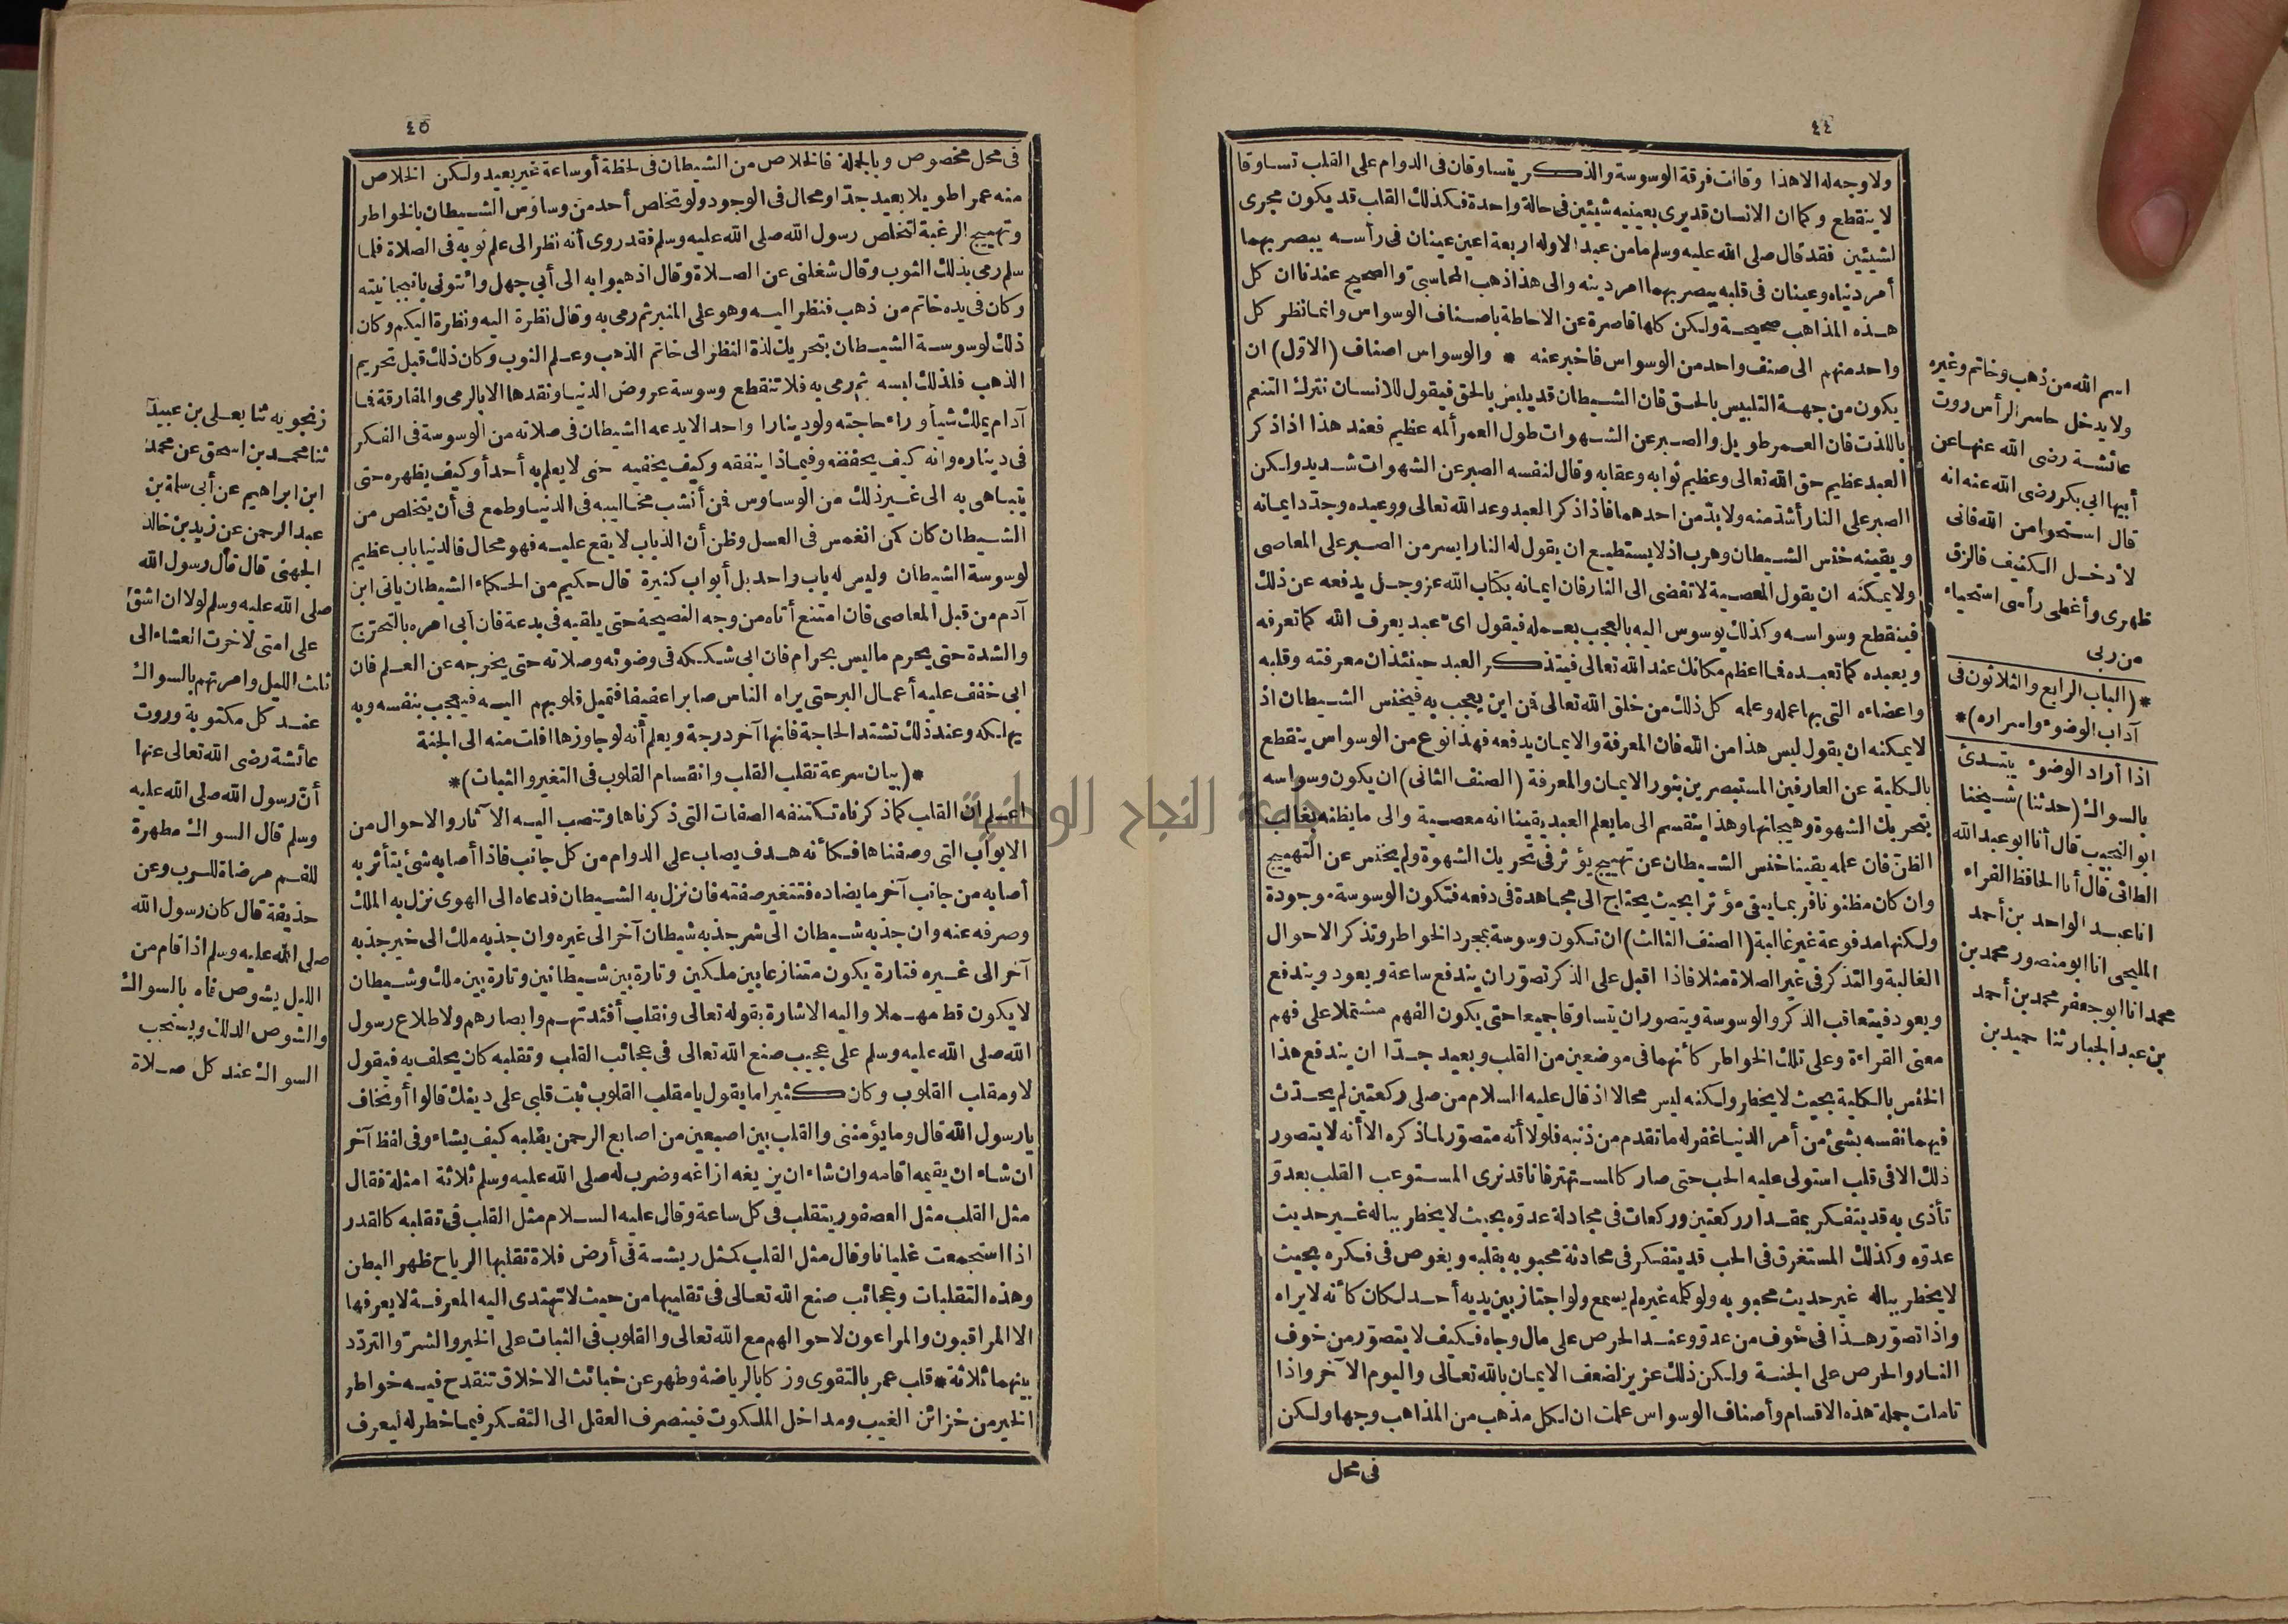 ٤٤
ولا وجه له الا هذا وقالت فرقة الوسوسة والذكر يتساوقان فى الدوام على القلب تساوقا
لا ينقطع وكما ان الانسان قد يرى بعينيه شيئين فى حالة واحدة فكذلك القلب قد يكون مجرى
لشيئين فقد قال صلى الله عليه وسلم ما من عبد الا وله اربعة اعين عينان فى رأسه يبصر بهما
أمر دنياه وعينان فى قلبه يبصر بهما امر دينه والى هذا ذهب المحاسبى والصحيح عندنا ان كل
هذه المذاهب صحيحة ولكن كلها قاصرة عن الاحاطة باصناف الوسواس وانما نظر كل
واحد منهم الى صنف واحد من الوسواس فاخبر عنه * والوسواس اصناف (الاوّل) ان
يكون من جهة التلبيس بالحق فان الشيطان قد يلبس بالحق فيقول للانسان تترك التنعم
باللذت فان العمر طويل والصبر عن الشهوات طول العمر ألمه عظيم فعند هذا اذا ذكر
العبد عظيم حق الله تعالى وعظيم ثوابه وعقابه وقال لنفسه الصبر عن الشهوات شديد ولكن
الصبر على النار أشدّ منه ولا بدّ من احدهما فاذا ذكر العبد وعد الله تعالى ووعيده وجدّد ايمانه
ويقينه خنس الشيطان وهرب اذ لا يستطيع ان يقول له النار ايسر من الصبر على المعاصى
ولا يمكنه ان يقول المعصية لا تفضى الى النار فان ايمانه بكتاب الله عز وجل يدفعه عن ذلك
فينقطع وسواسه وكذلك يوسوس اليه بالعجب بعمله فيقول اىّ عبد يعرف الله كما تعرفه
ويعبده كما تعبده فما اعظم مكانك عند الله تعالى فيتذكر العبد حينئذ ان معرفته وقلبه
واعضاءه التى بها عمله وعلمه كل ذلك من خلق الله تعالى فن اين يعجب به فيخنس الشيطان اذ
لا يمكنه ان يقول ليس هذا من الله فان المعرفة والايمان يدفعه فهذا نوع من الوسواس ينقطع
بالكلية عن العارفين المستبصرين بنور الايمان والمعرفة (الصنف الثانى) ان يكون وسواسه
بتحريك الشهوة وهيجانها وهذا ينقسم الى ما يعلم العبد يقينا انه معصية والى ما يظنه بغالب
الظنّ فان علمه يقينا خنس الشيطان عن تهييج يؤثر فى تحريك الشهوة ولم يخنس عن التهييج
وان كان مظنونا فربما يبقى مؤثرا بحيث يحتاج الى مجاهدة فى دفعه فتكون الوسوسة موجودة
ولكنها مدفوعة غير غالبة (الصنف الثالث) ان تكون وسوسة بمجرد الخواطر وتذكر الاحوال
الغالبة والتذكر فى غير الصلاة مثلا فاذا اقبل على الذكر تصوّر ان يندفع ساعة ويعود ويندفع
ويعود فيتعاقب الذكر والوسوسة ويتصور ان يتساوقا جميعا حتى يكون الفهم مشتملا على فهم
معنى القراءة وعلى تلك الخواطر كأنهما فى موضعين من القلب وبعيد جدّا ان يندفع هذا
الخنس بالكلية بحيث لا يخطر ولكنه ليس محالا اذ قال عليه السلام من صلى ركعتين لم يحدّث
فيهما نفسه بشئ من أمر الدنيا غفر له ما تقدم من ذنبه فلولا أنه متصوّر لما ذكره الا أنه لا يتصور
ذلك الا فى قلب استولى عليه الحب حتى صار كالمستهتر فانا قد نرى المستوعب القلب بعدوّ
تأذى به قد يتفكر بمقدار ركعتين وركعات فى مجادلة عدوّه بحيث لا يخطر بباله غير حديث
عدوّه وكذلك المستغرق فى الحب قد يتفكر فى محادثة محبوبه بقلبه ويغوص فى فكره بحيث
لا يخطر بباله غير حديث محبوبه ولو كلمه غيره لم يسمع ولو اجتاز بين يديه أحد لكان كأنه لا يراه
واذا تصوّر هذا فى خوف من عدوّ وعند الحرص على مال وجاه فكيف لا يتصوّر من خوف
النار والحرص على الجنة ولكن ذلك عزيز لضعف الايمان بالله تعالى واليوم الآخر واذا
تاملت جملة هذه الاقسام وأصناف الوسواس علمت ان لكل مذهب من المذاهب وجها ولكن
فى محل
اسم الله من ذهب وخاتم وغيره
ولا يدخل حاسر الرأس روت
عائشة رضى الله عنها عن
أبيها ابى بكر رضى الله عنه انه
قال استحوا من الله فانى
لأدخل الكنيف فالزق
ظهرى وأغطى رأسى استحياء
من ربى
*(الباب الرابع والثلاثون فى
آداب الوضوء واسراره)*
اذا أراد الوضوء يبتدئ
بالسواك (حدثنا) شيخنا
ابو النجيب قال أنا ابو عبد الله
الطائى قال أنا الحافظ الفراء
انا عبد الواحد بن أحمد
المليحى انا ابو منصور محمد بن
محمد انا ابو جعفر محمد بن أحمد
بن عبد الجبار ثنا حميد بن
٤٥
فى محل مخصوص وبالجملة فالخلاص من الشيطان فى لحظة أو ساعة غير بعيد ولكن الخلاص
منه عمرا طويلا بعيد جدّا ومحال فى الوجود ولو تخلص أحد من وساوس الشيطان بالخواطر
وتهييج الرغبة لتخلص رسول الله صلى الله عليه وسلم فقد روى أنه نظر الى علم ثوبه فى الصلاة فلما
سلم رمى بذلك الثوب وقال شغلنى عن الصلاة وقال اذهبوا به الى أبى جهل وائتونى بانبجانيته
وكان فى يده خاتم من ذهب فنظر اليه وهو على المنبر ثم رمى به وقال نظرة اليه ونظرة اليكم وكان
ذلك لوسوسة الشيطان بتحريك لذة النظر الى خاتم الذهب وعلم الثوب وكان ذلك قبل تحريم
الذهب فلذلك لبسه ثم رمى به فلا تنقطع وسوسة عروض الدنيا ونقدها الا بالرمى والمفارقة فما
آدام يملك شيأ وراء حاجته ولو دينارا واحد الا يدعه الشيطان فى صلاته من الوسوسة فى الفكر
فى ديناره وانه كيف يحفظه وفيما ذا ينفقه وكيف يخفيه حتى لا يعلم به أحد أو كيف يظهره حتى
يتباهى به الى غير ذلك من الوساوس فمن أنشب مخاليبه فى الدنيا وطمع فى أن يتخلص من
الشيطان كان كمن انغمس فى العسل وظن أن الذباب لا يقع عليه فهو محال فالدنيا باب عظيم
لوسوسة الشيطان وليس له باب واحد بل أبواب كثيرة قال حكيم من الحكماء الشيطان ياتى ابن
آدم من قبل المعاصى فان امتنع أتاه من وجه النصيحة حتى يلقيه فى بدعة فان أبى امره بالتحرّج
والشدة حتى يحرم ما ليس بحرام فان ابى شككه فى وضوئه وصلاته حتى يخرجه عن العلم فان
ابى خفف عليه أعمال البر حتى يراه الناس صابرا عفيفا فتميل قلوبهم اليه فيعجب بنفسه وبه
يهلكه وعند ذلك تشتد الحاجة فانها آخر درجة ويعلم أنه لو جاوزها افلت منه الى الجنة
*(بيان سرعة تقلب القلب وانقسام القلوب فى التغير والثبات)*
اعلم ان القلب كما ذكرناه تكتنفه الصفات التى ذكرناها وتنصب اليه الآثار والاحوال من
الابواب التى وصفناها فكأنه هدف يصاب على الدوام من كل جانب فاذا أصابه شئ يتأثر به
أصابه من جانب آخر ما يضاده فتتغير صفته فان نزل به الشيطان فدعاه الى الهوى نزل به الملك
وصرفه عنه وان جذبه شيطان الى شر جذبه شيطان آخر الى غيره وان جذبه ملك الى خير جذبه
آخر الى غيره فتارة يكون متنازعا بين ملكين وتارة بين شيطانين وتارة بين ملك وشيطان
لا يكون قط مهملا واليه الاشارة بقوله تعالى ونقلب أفئدتهم وابصارهم ولاطلاع رسول
الله صلى الله عليه وسلم على عجيب صنع الله تعالى فى عجائب القلب وتقلبه كان يحلف به فيقول
لا ومقلب القلوب وكان كثيرا ما يقول يا مقلب القلوب ثبت قلبى على دينك قالوا أو تخاف
يا رسول الله قال وما يؤمننى والقلب بين اصبعين من اصابع الرحمن يقلبه كيف يشاء وفى لفظ آخر
ان شاء ان يقيمه اقامه وان شاء ان يزيغه ازاغه وضرب له صلى الله عليه وسلم ثلاثة امثلة فقال
مثل القلب مثل العصفور يتقلب فى كل ساعة وقال عليه السلام مثل القلب فى تقلبه كالقدر
اذا استجمعت غليانا وقال مثل القلب كمثل ريشة فى أرض فلاة تقلبها الرياح ظهر البطن
وهذه التقلبات وعجائب صنع الله تعالى فى تقليبها من حيث لا تهتدى اليه المعرفة لا يعرفها
الا المراقبون والمراعون لاحوالهم مع الله تعالى والقلوب فى الثبات على الخير والشرّ والتردّد
بينهما ثلاثة * قلب عمر بالتقوى وزكا بالرياضة وطهر عن خبائث الاخلاق تنقدح فيه خواطر
الخير من خزائن الغيب ومداخل الملكوت فينصرف العقل الى التفكر فيما خطر له ليعرف
زنجويه ثنا يعلى بن عبيد
ثنا محمد بن اسحق عن محمد
ابن ابراهيم عن أبى سلمة بن
عبد الرحمن عن زيد بن خالد
الجهنى قال قال رسول الله
صلى الله عليه وسلم لولا ان اشق
على امتى لاخرت العشاء الى
ثلث الليل وامرتهم بالسواك
عند كل مكتوبة وروت
عائشة رضى الله تعالى عنها
أنّ رسول الله صلى الله عليه
وسلم قال السواك مطهرة
للفم مرضاة للرب وعن
حذيفة قال كان رسول الله
صلى الله عليه وسلم اذا قام من
الليل يشوص فاه بالسواك
والشوص الدلك ويستحب
السواك عند كل صلاة
جامعة النجاح الوطنية